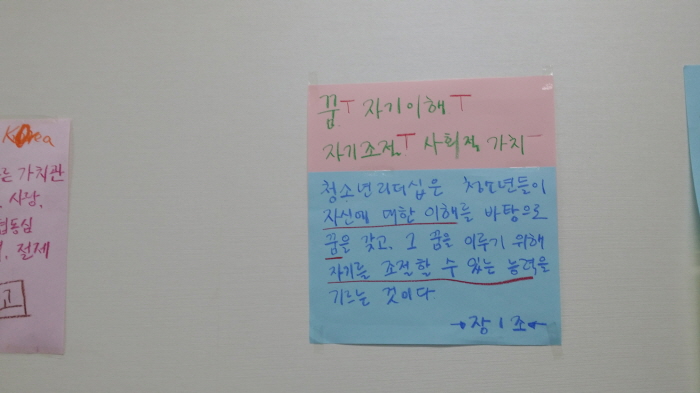 Korea
른 가치관
사랑,
협동심
절제
고
꿈 자기이해
자기조절 사회적 가치
청소년리더십은 청소년들이
자신에 대한 이해를 바탕으로
꿈을 갖고, 그 꿈을 이루기 위해
자기를 조절할 수 있는 능력을
기르는 것이다
장 1 조